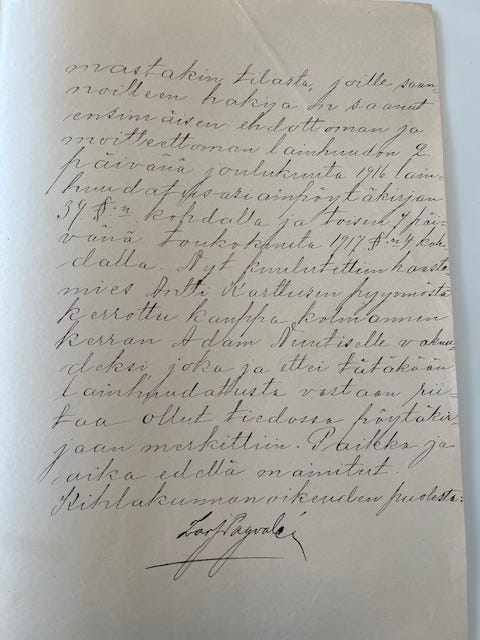 mastakin tilasta, joille saan-
noilleen hakija on saanut
ensimäisen ehdottoman ja
moitteettoman lainhuudon 2.
päivänä joulukuuta 1916 lain-
huudatusasiainpöytäkirjan
39 §:n kohdalla ja toisen 7 päi-
vänä toukokuuta 1917 §:n 4 koh-
dalla. Nyt kuulutettiin haasto-
mies Antti Karttusen pyynnöstä
kerrottu kauppa kolmannen
kerran Adam Nuutiselle vakuu-
deksi, joka ja ettei tätäkään
lainhuudatusta vastaan rii-
taa ollut tiedossa pöytäkir-
jaan merkittiin. Paikka ja
aika edellä mainitut.
Kihlakunnanoikeuden puolesta: